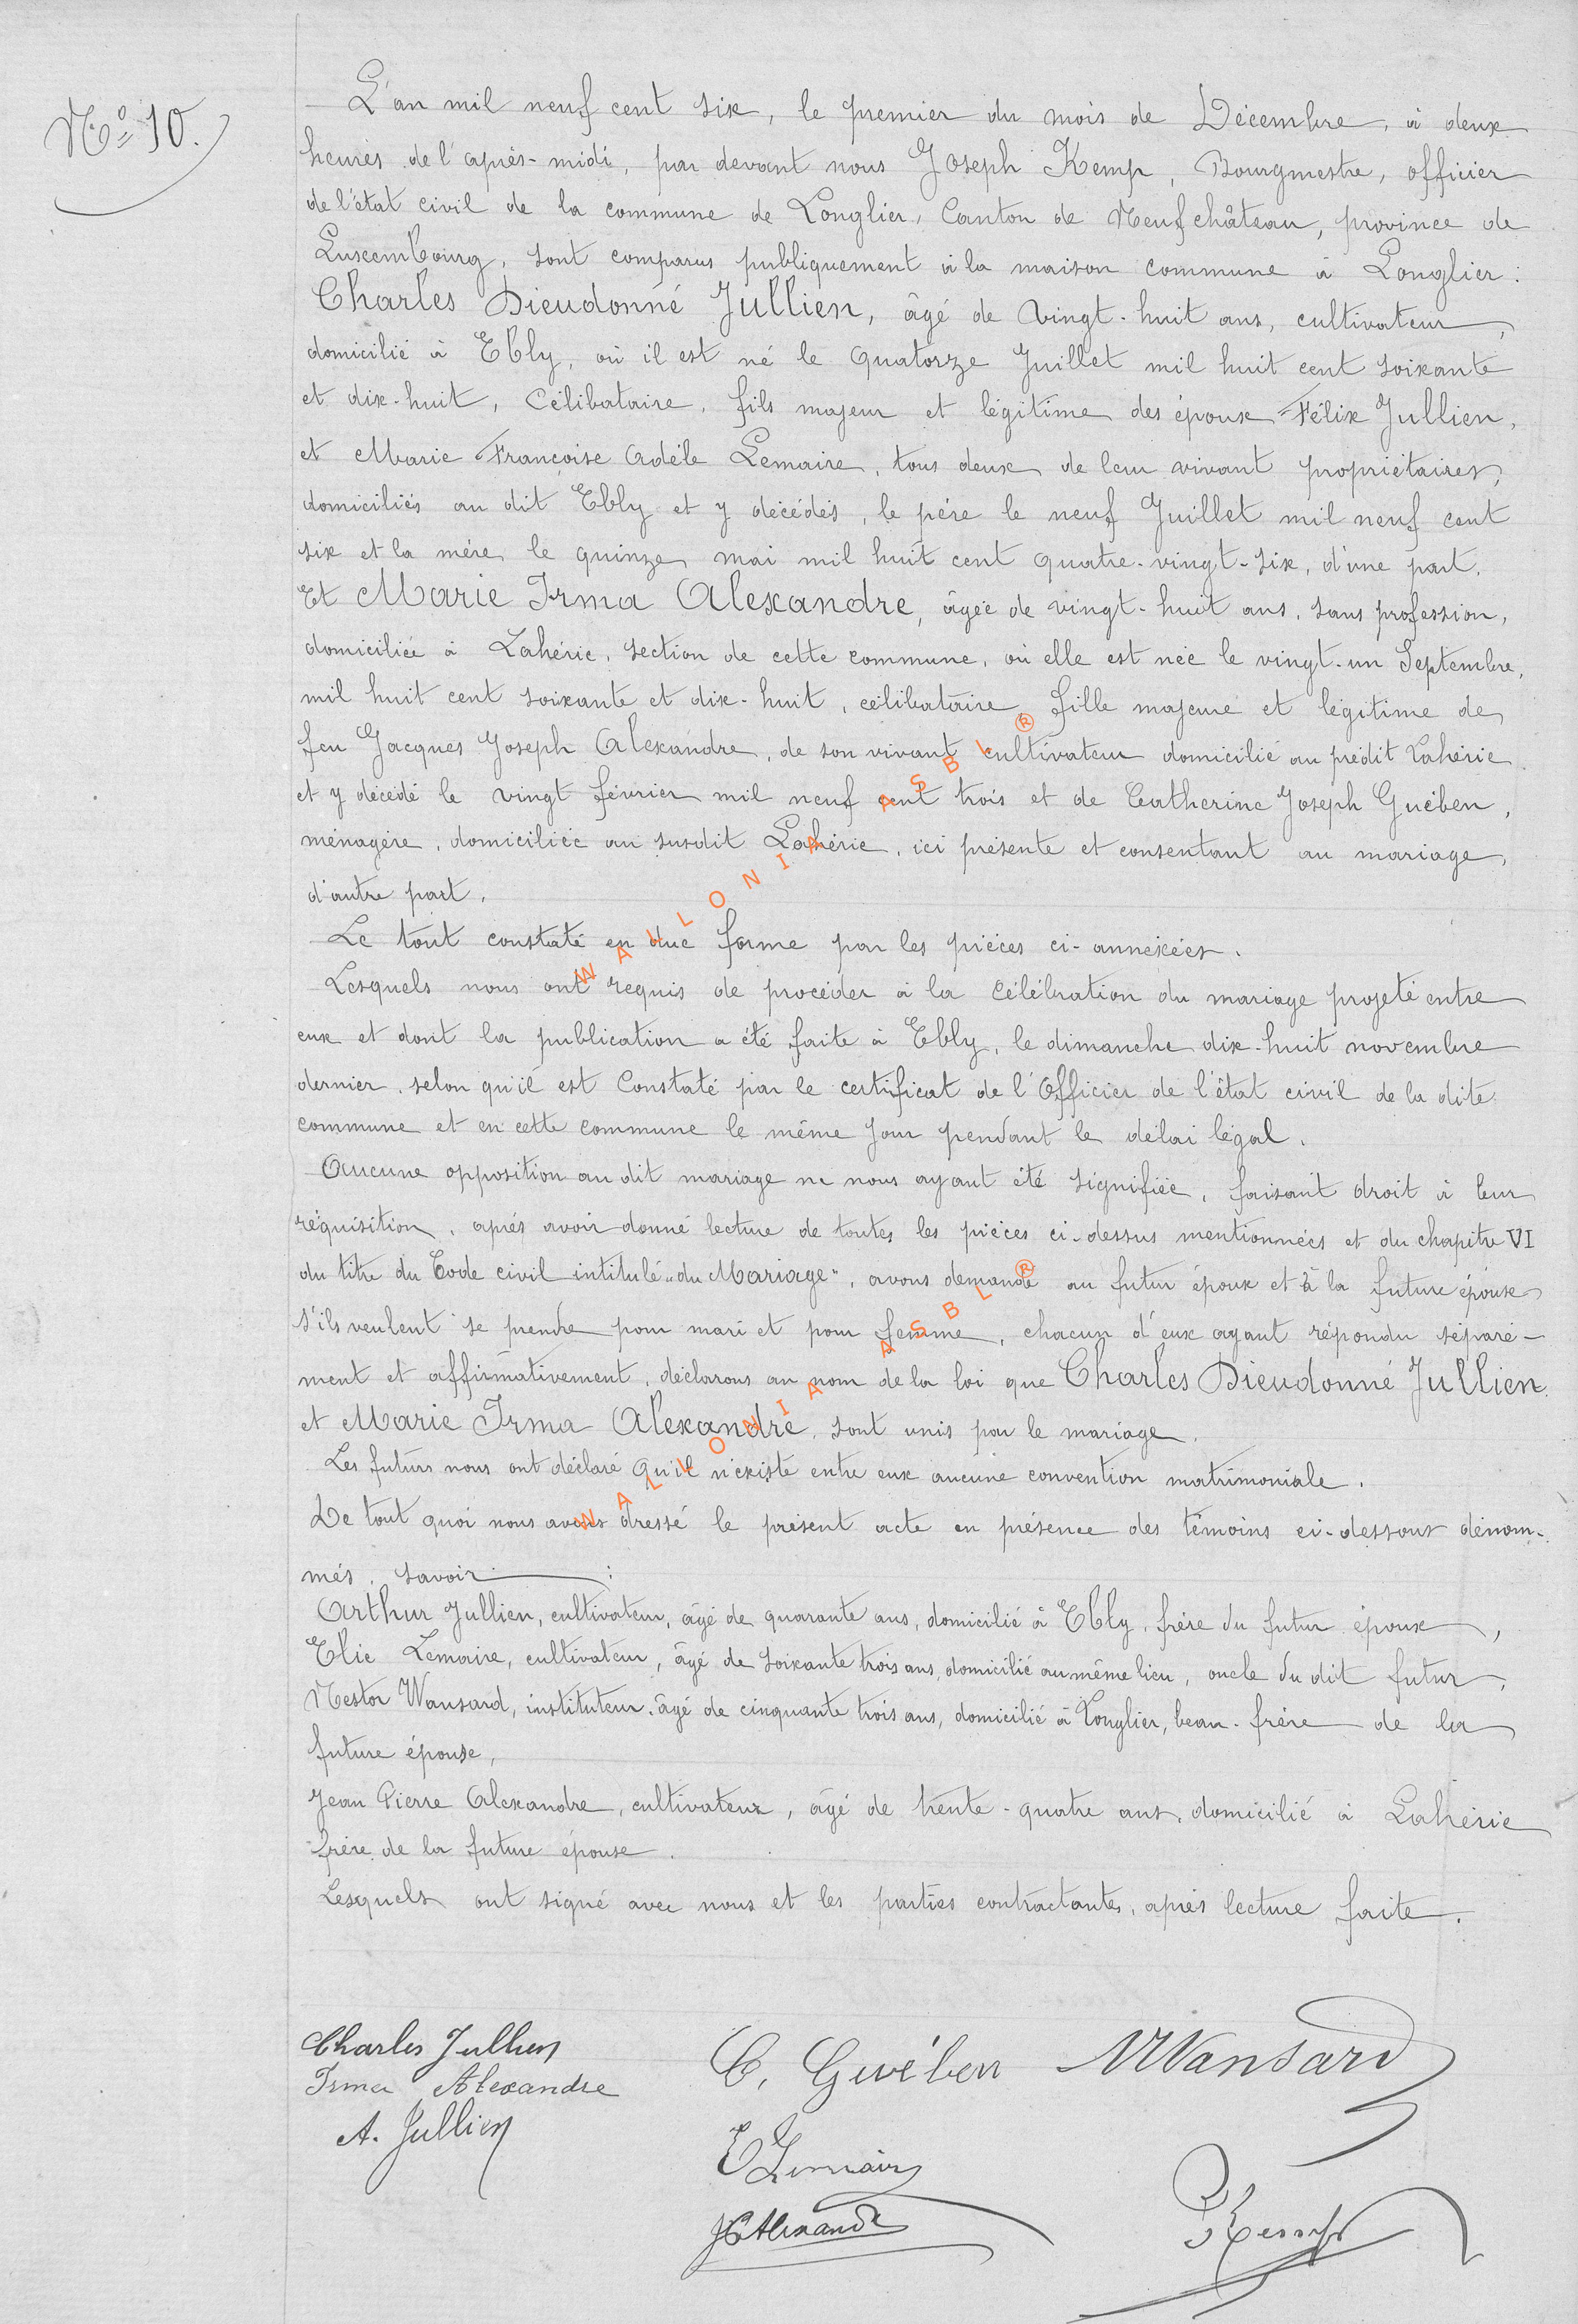 Nº 10.
L'an mil neuf cent six, le premier du mois de Décembre, à deux
heures de l'après-midi, par devant nous Joseph Kemp, Bourgmestre, officier
de l'état civil de la commune de Longlier, Canton de Neufchâteau, province de
Luxembourg, sont comparus publiquement à la maison commune à Longlier :
Charles Dieudonné Jullien, âgé de vingt-huit ans, cultivateur,
domicilié à Ebly, où il est né le quatorze Juillet mil huit cent soixante
et dix-huit, Célibataire, fils majeur et légitime des époux Félix Jullien,
et Marie Françoise Adèle Lemaire, tous deux de leur vivant propriétaires,
domiciliés au dit Ebly et y décédés, le père le neuf Juillet mil neuf cent
six et la mère le quinze mai mil huit cent quatre-vingt-six, d'une part.
Et Marie Irma Alexandre, âgée de vingt-huit ans, sans profession,
domiciliée à Lahérie, section de cette commune, où elle est née le vingt-un Septembre,
mil huit cent soixante et dix-huit, célibataire, fille majeure et légitime de
feu Jacques Joseph Alexandre, de son vivant cultivateur domicilié au prédit Lahérie
et y décédé le vingt février mil neuf cent trois et de Catherine Joseph Guében,
ménagère, domiciliée au susdit Lahérie, ici présente et consentant au mariage,
d'autre part.
Le tout constaté en due forme par les pièces ci-annexées.
Lesquels nous ont requis de procéder à la Célébration du mariage projeté entre
eux et dont la publication a été faite à Ebly, le dimanche dix-huit novembre
dernier, selon qu'il est Constaté par le certificat de l'Officier de l'état civil de la dite
commune et en cette commune le même jour pendant le délai légal.
Aucune opposition au dit mariage ne nous ayant été signifiée, faisant droit à leur
réquisition, après avoir donné lecture de toutes les pièces ci-dessus mentionnées et du chapitre VI
du titre du Code civil intitulé „du Mariage", avons demandé au futur époux et à la future épouse
s'ils veulent se prendre pour mari et pour femme, chacun d'eux ayant répondu séparé-
ment et affirmativement, déclarons au nom de la loi que Charles Dieudonné Jullien
et Marie Irma Alexandre, sont unis par le mariage.
Les futurs nous ont déclaré qu'il n'existe entre eux aucune convention matrimoniale.
De tout quoi nous avons dressé le présent acte en présence des témoins ci-dessous dénom-
més, savoir :
Arthur Jullien, cultivateur, âgé de quarante ans, domicilié à Ebly, frère du futur époux,
Elie Lemaire, cultivateur, âgé de soixante trois ans, domicilié au même lieu, oncle du dit futur,
Nestor Wansard, instituteur, âgé de cinquante trois ans, domicilié à Longlier, beau-frère de la
future épouse,
Jean Pierre Alexandre, cultivateur, âgé de trente-quatre ans, domicilié à Lahérie
frère de la future épouse.
Lesquels ont signé avec nous et les parties contractantes, après lecture faite.
Charles Jullien C. Guében NWansard
Irma Alexandre
A. Jullien ELemaire
JPAlexandre JKemp
WALLONIA ASBL ®
WALLONIA ASBL ®